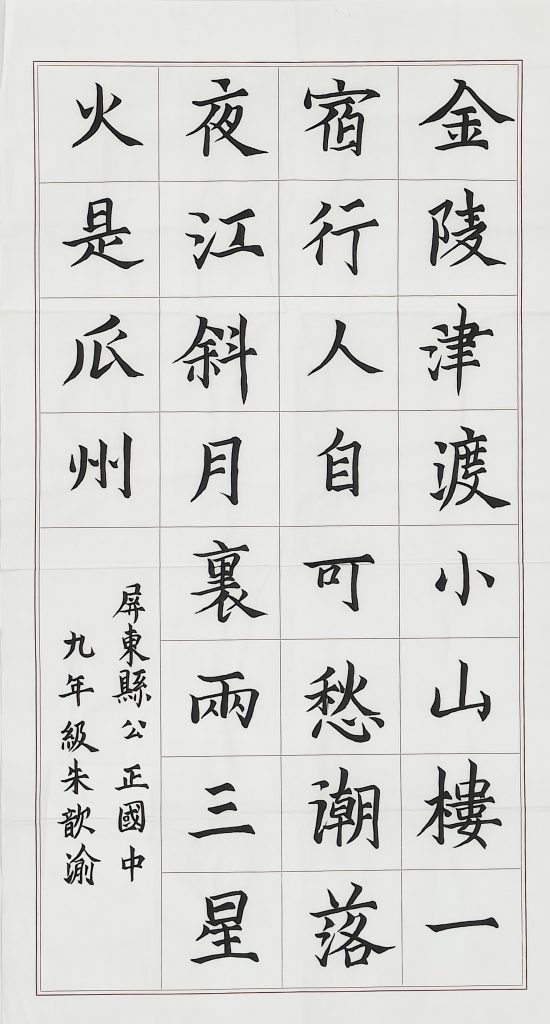 金陵津渡小山樓一
宿行人自可愁潮落
夜江斜月裏兩三星
火是瓜州
屏東縣公正國中
九年級朱歆渝